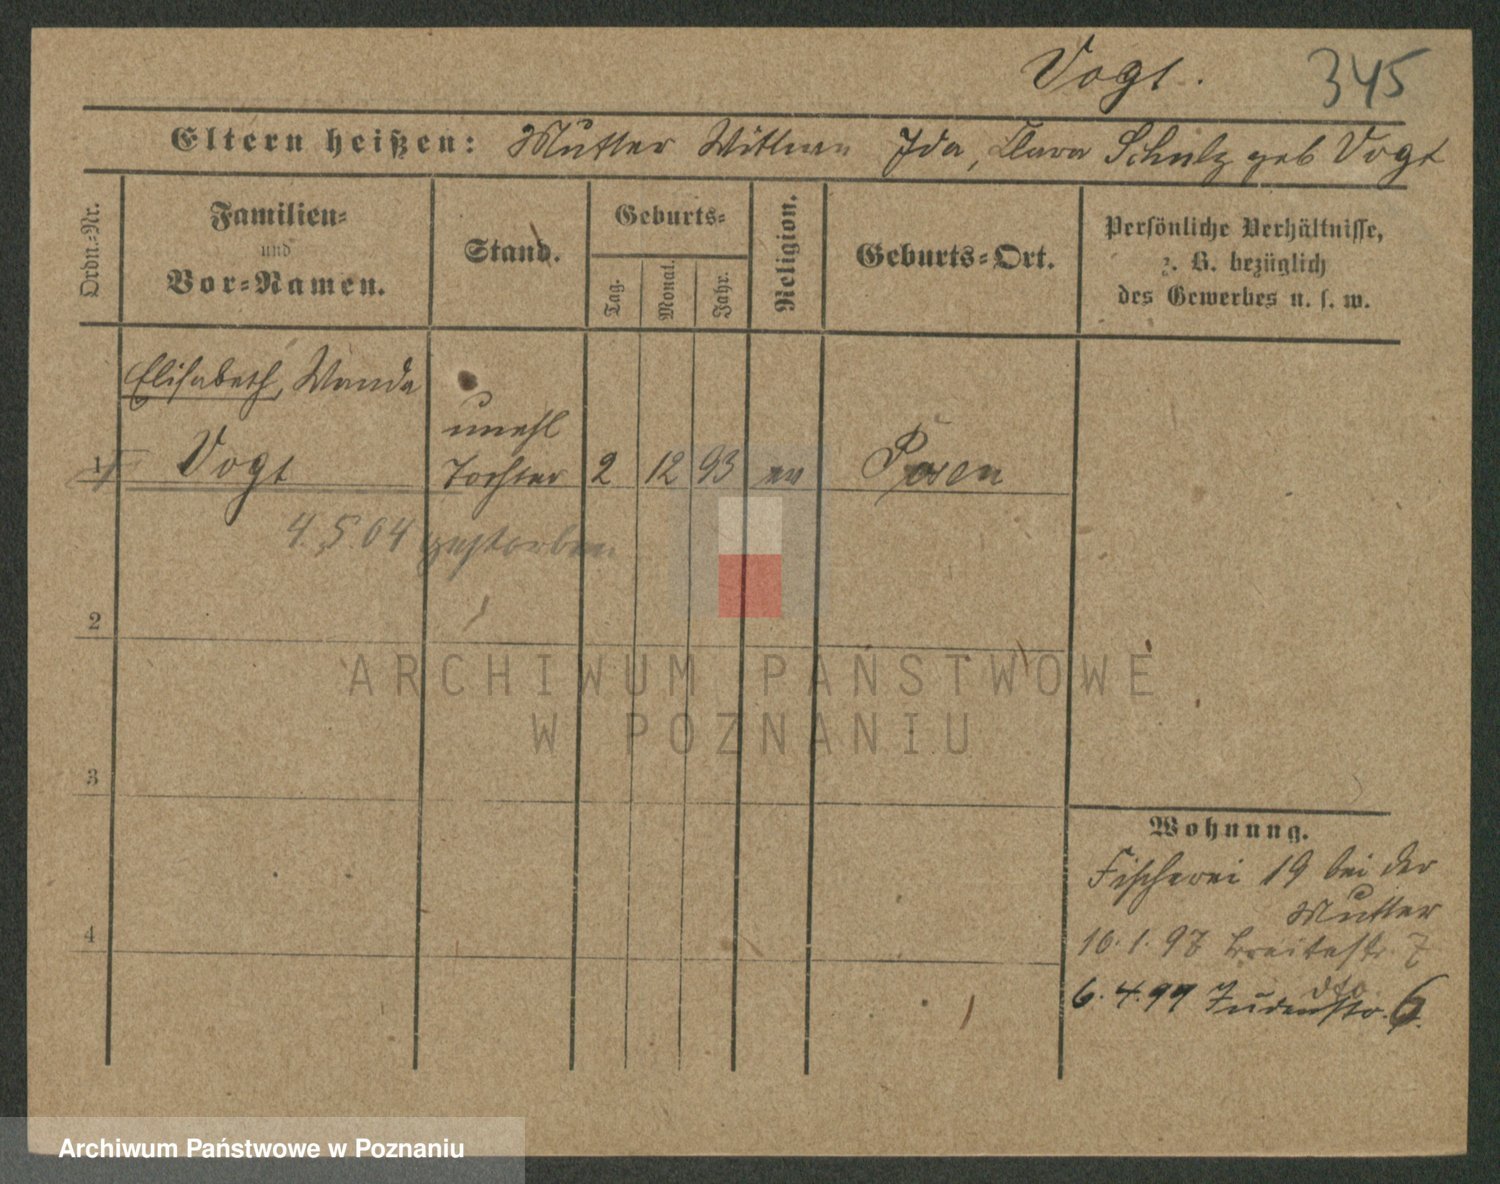 Vogt. 345
Eltern heißen: Mutter Wittwe Ida, Clara Schulz geb Vogt
Ordn.-Nr.
Familien-
und
Vor-Namen.
Stand.
Geburts-
Tag.
Monat.
Jahr.
Religion.
Geburts-Ort.
Persönliche Verhältnisse,
z. B. bezüglich
des Gewerbes u. s. w.
Elisabeth, Wanda
unehl
1 Vogt Tochter 2 12 93 ev Posen
4.5.04 gestorben
2
ARCHIWUM PAŃSTWOWE
W POZNANIU
3
4
Wohnung.
Fischerei 19 bei der
Mutter
10.1.97 Breitestr. 7
dto
6.4.99 Judenstr. 6.
Archiwum Państwowe w Poznaniu